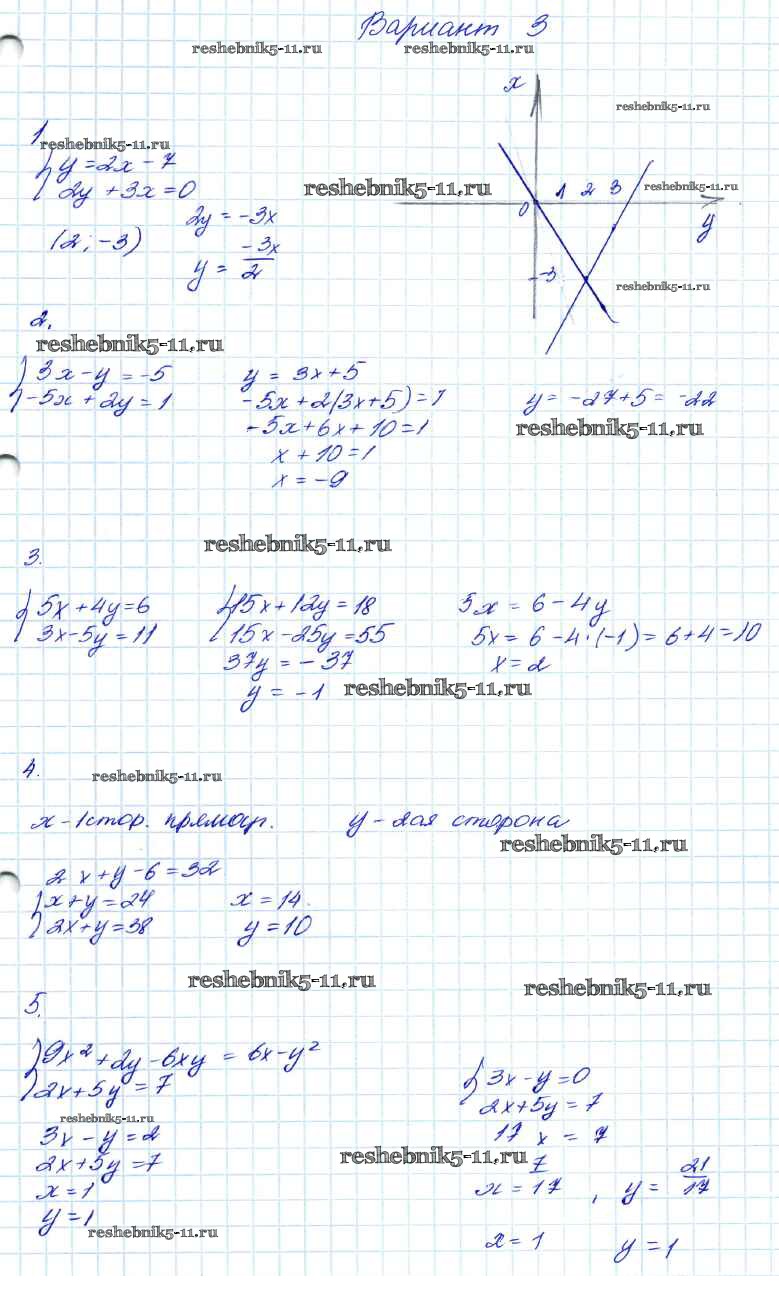 Вариант 3
reshebnik5-11.ru reshebnik5-11.ru
x
reshebnik5-11.ru
1
reshebnik5-11.ru
y = 2x - 7
2y + 3x = 0
reshebnik5-11.ru
0 1 2 3
reshebnik5-11.ru
y
2y = -3x
(2; -3)
y = -3x/2
-3
reshebnik5-11.ru
2.
reshebnik5-11.ru
3x - y = -5
-5x + 2y = 1
y = 3x + 5
-5x + 2(3x + 5) = 1
-5x + 6x + 10 = 1
x + 10 = 1
x = -9
y = -27 + 5 = -22
reshebnik5-11.ru
reshebnik5-11.ru
3.
5x + 4y = 6
3x - 5y = 11
15x + 12y = 18
15x - 25y = 55
37y = -37
y = -1
5x = 6 - 4y
5x = 6 - 4·(-1) = 6 + 4 = 10
x = 2
reshebnik5-11.ru
4.
reshebnik5-11.ru
x - 1 стор. прямоуг. y - 2ая сторона
reshebnik5-11.ru
2x + y - 6 = 32
x + y = 24 x = 14.
2x + y = 38 y = 10
reshebnik5-11.ru
reshebnik5-11.ru
5.
9x² + 2y - 6xy = 6x - y²
2x + 5y = 7
reshebnik5-11.ru
3x - y = 2
2x + 5y = 7
x = 1
y = 1
reshebnik5-11.ru
3x - y = 0
2x + 5y = 7
17x = 7
reshebnik5-11.ru
x = 7/17, y = 21/17
x = 1 y = 1